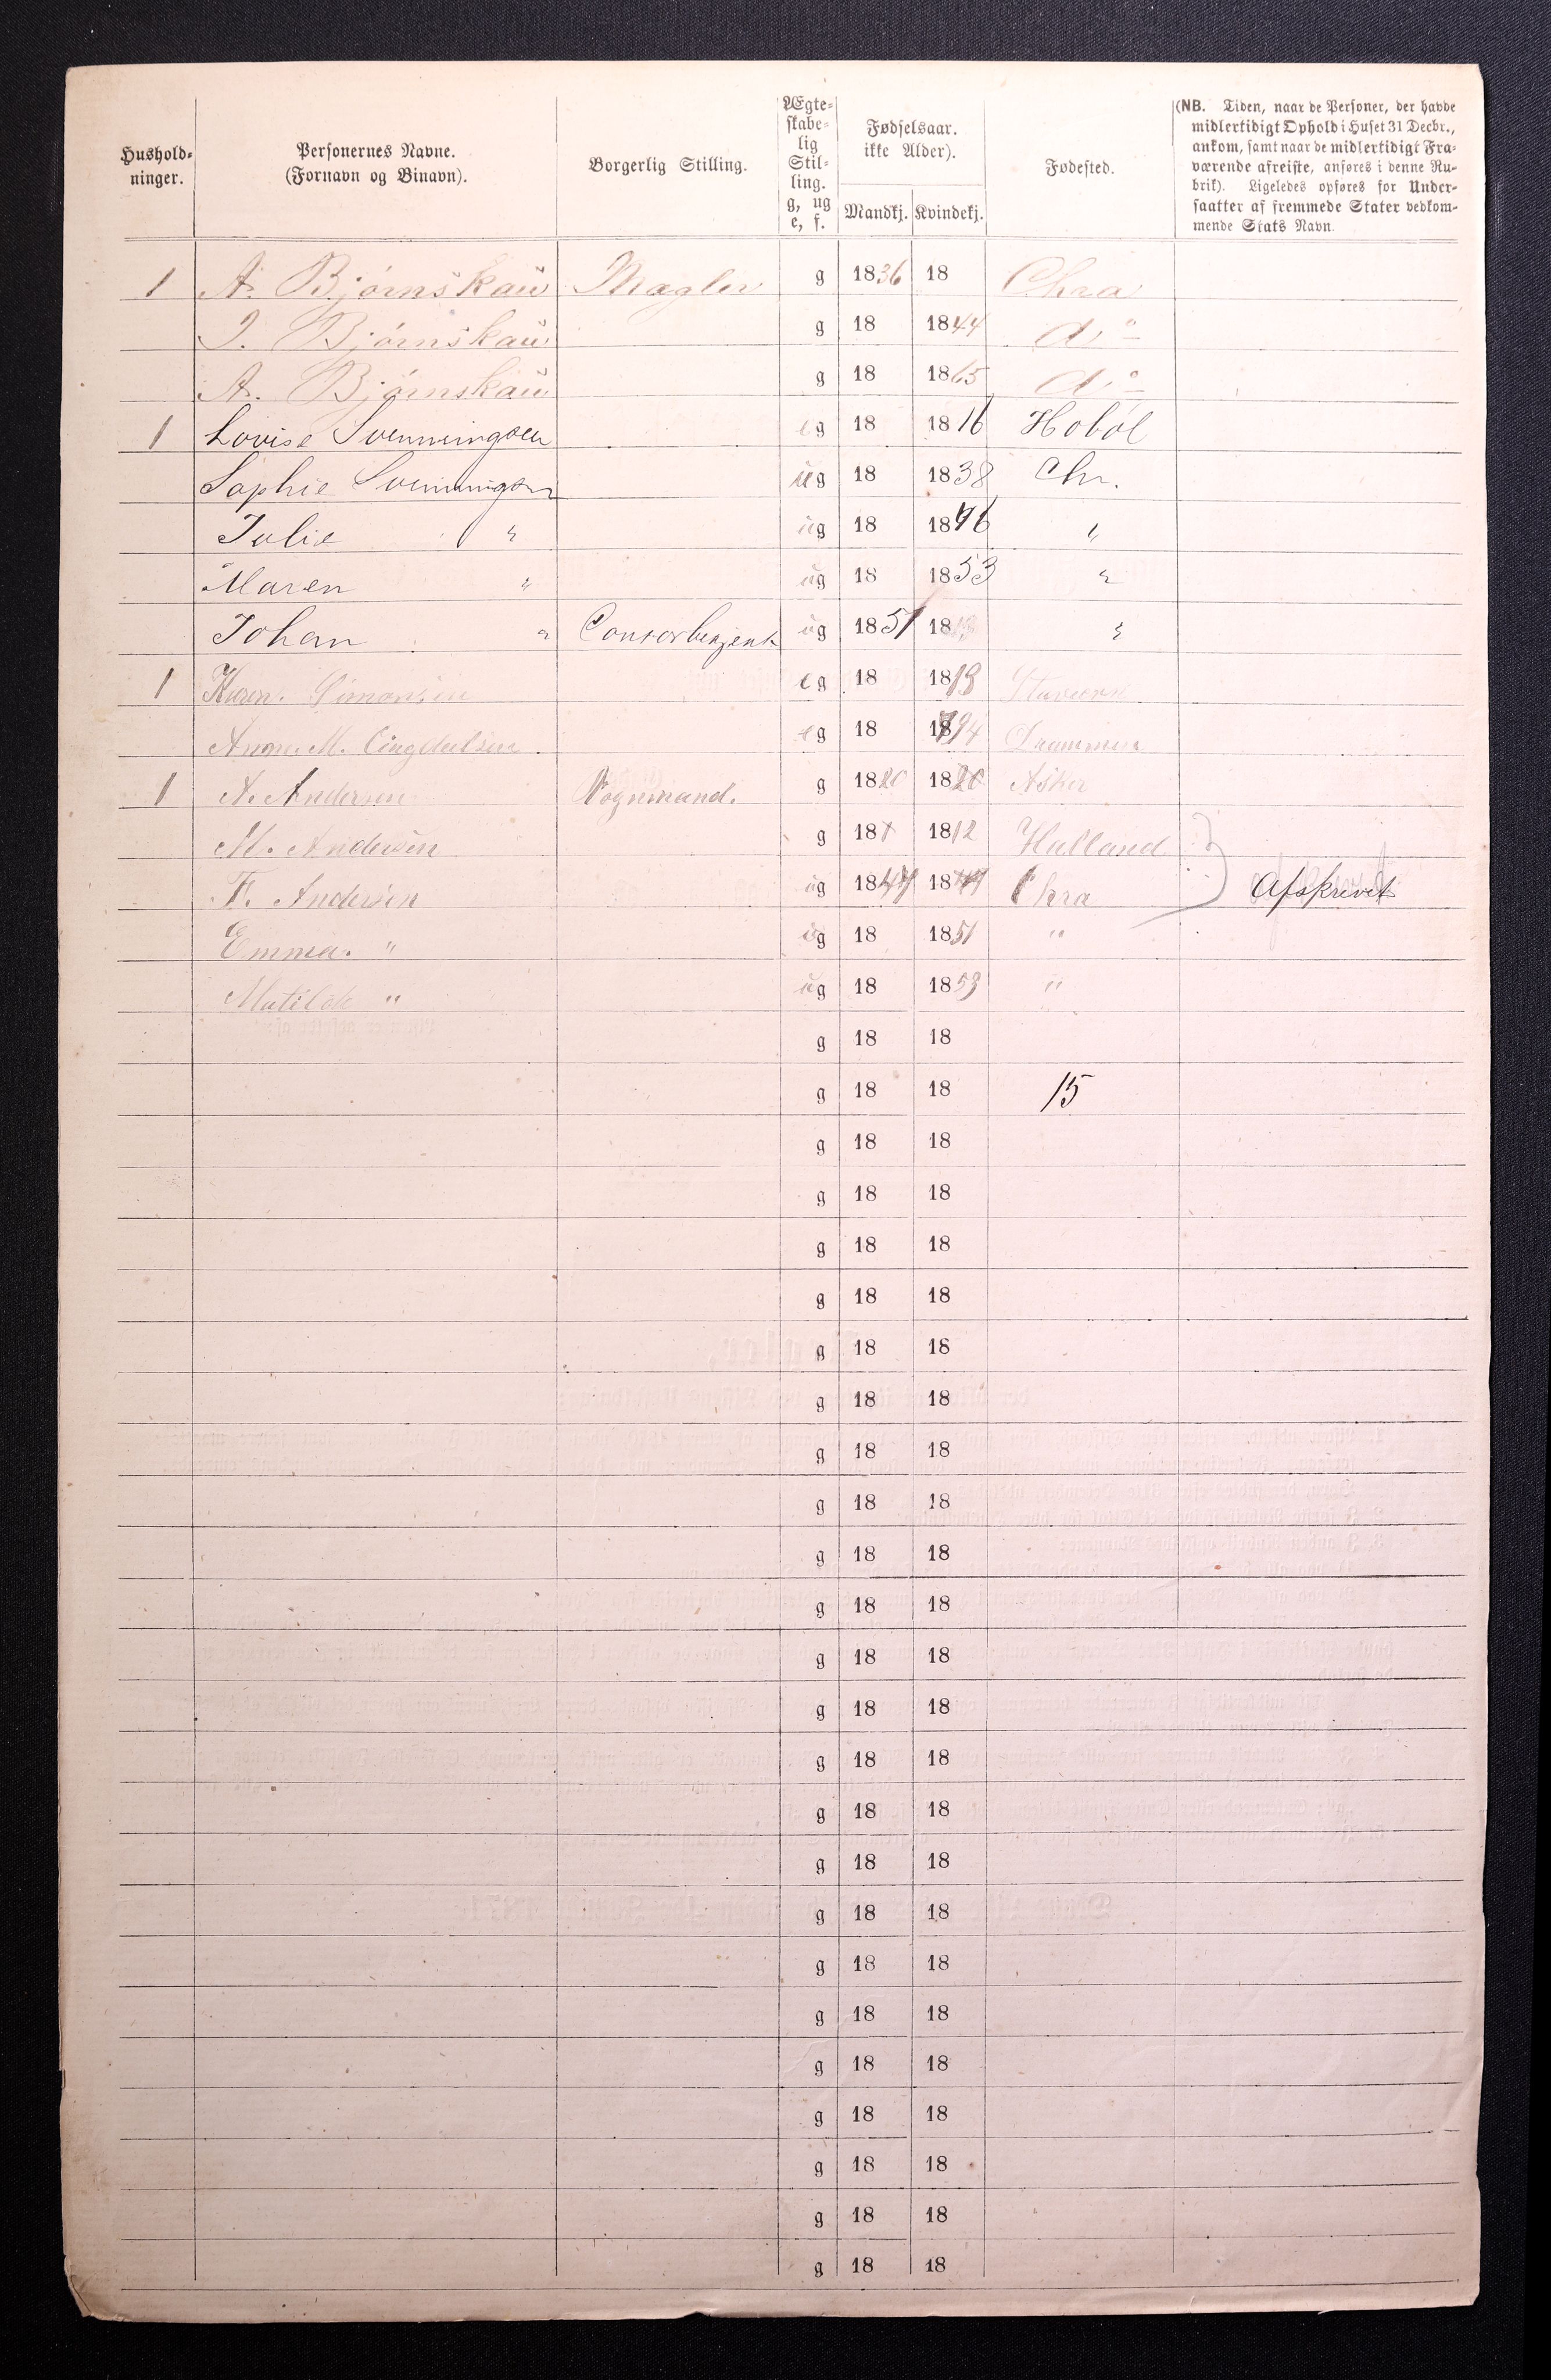 Hushold-
ninger.
Personernes Navne.
(Fornavn og Binavn).
Borgerlig Stilling.
Ægte-
skabe-
lig
Stil-
ling.
g, ug
e, f.
Fødselsaar.
ikke Alder).
Mandkj. Kvindekj.
Fødested.
(NB. Tiden, naar de Personer, der havde
midlertidigt Ophold i Huset 31 Decbr.,
ankom, samt naar de midlertidigt Fra-
værende afreiste, anføres i denne Ru-
brik). Ligeledes opføres for Under-
saatter af fremmede Stater vedkom-
mende Stats Navn.
1 A. Bjørnskau Mægler g 1836 18 Chra
J. Bjørnskau g 18 1844 do
A. Bjørnskau g 18 1865 do
1 Lovise Svenningsen eg 18 1816 Hobøl
Sophie Svenningsen ug 18 1838 Chr.
Julie " ug 18 1846 "
Maren " ug 18 1853 "
Johan " Contorbetjent ug 1851 18 "
1 Karen Simonsen eg 18 1813
Anne M. eg 18 1794 Drammen
1 A. Andersen Vognmand. g 1820 18 Asker
M. Andersen g 18 1812 Hulland
F. Andersen ug 1847 18 Chra Afskrevet
Emma. " ug 18 1851 "
Matilde " ug 18 1853 "
g 18 18
g 18 18 15
g 18 18
g 18 18
g 18 18
g 18 18
g 18 18
g 18 18
g 18 18
g 18 18
g 18 18
g 18 18
g 18 18
g 18 18
g 18 18
g 18 18
g 18 18
g 18 18
g 18 18
g 18 18
g 18 18
g 18 18
g 18 18
g 18 18
g 18 18